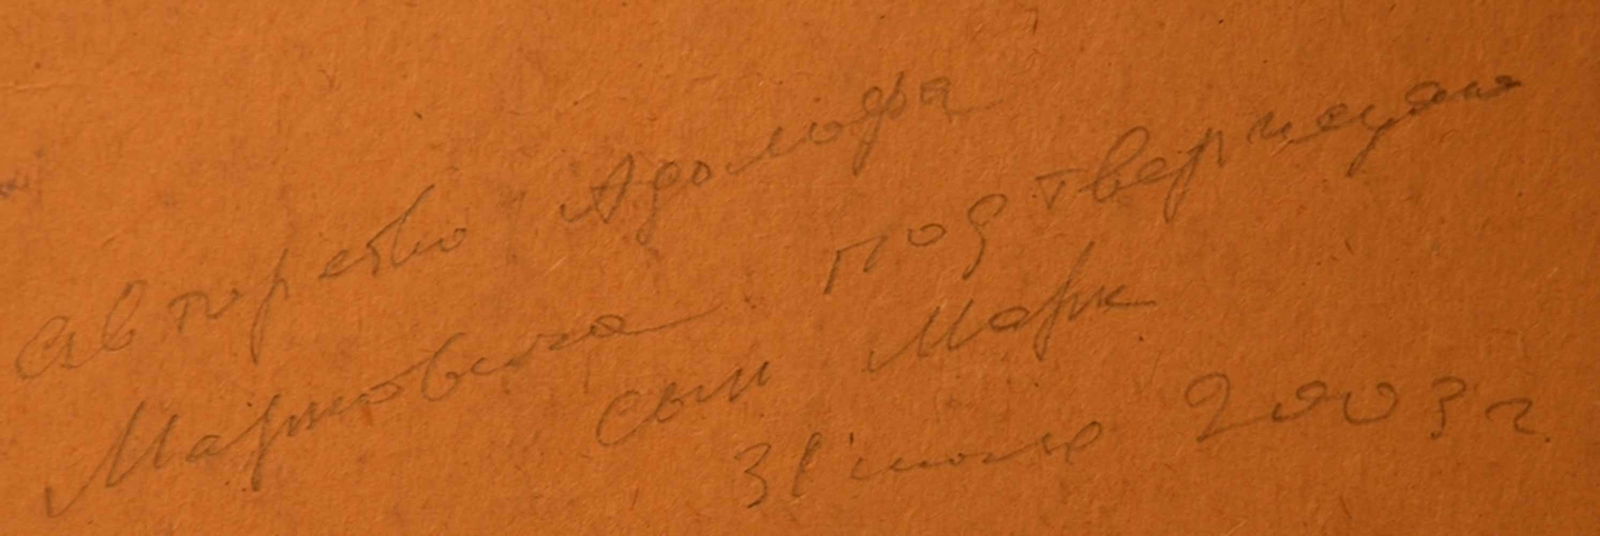 авторство Адольфа
Марковича подтверждаю
сын Марк
31 июля 2003 г.